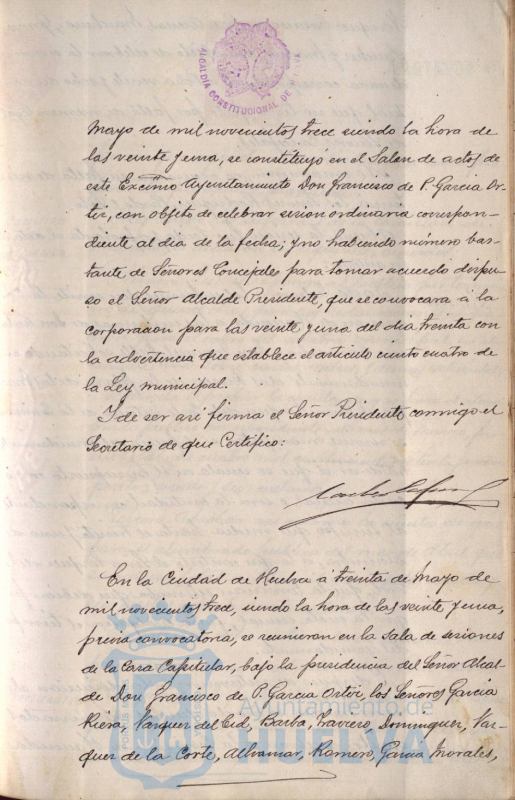 ALCALDÍA CONSTITUCIONAL DE HUELVA
Mayo de mil novecientos trece siendo la hora de
las veinte y una, se constituyó en el Salon de actos de
este Excmo Ayuntamiento Don Francisco de P. Garcia Or-
tiz, con objeto de celebrar sesion ordinaria correspon-
diente al dia de la fecha; y no habiendo número bas-
tante de Señores Concejales para tomar acuerdo dispu-
so el Señor Alcalde Presidente, que se convocara á la
corporacion para las veinte y una del dia treinta con
la advertencia que establece el articulo ciento cuatro de
la Ley municipal.
Y de ser asi firma el Señor Presidente conmigo el
Secretario de que Certifico:
En la Ciudad de Huelva á treinta de Mayo de
mil novecientos trece, siendo la hora de las veinte y una,
previa convocatoria, se reunieron en la sala de sesiones
de la Casa Capitular, bajo la presidencia del Señor Alcal-
de Don Francisco de P. Garcia Ortiz, los Señores Garcia
Riera, Vazquez del Cid, Barba, Traviero, Dominguez, Vaz-
quez de la Corte, Albamar, Romero, Garcia Morales,
Ayuntamiento de
HUELVA